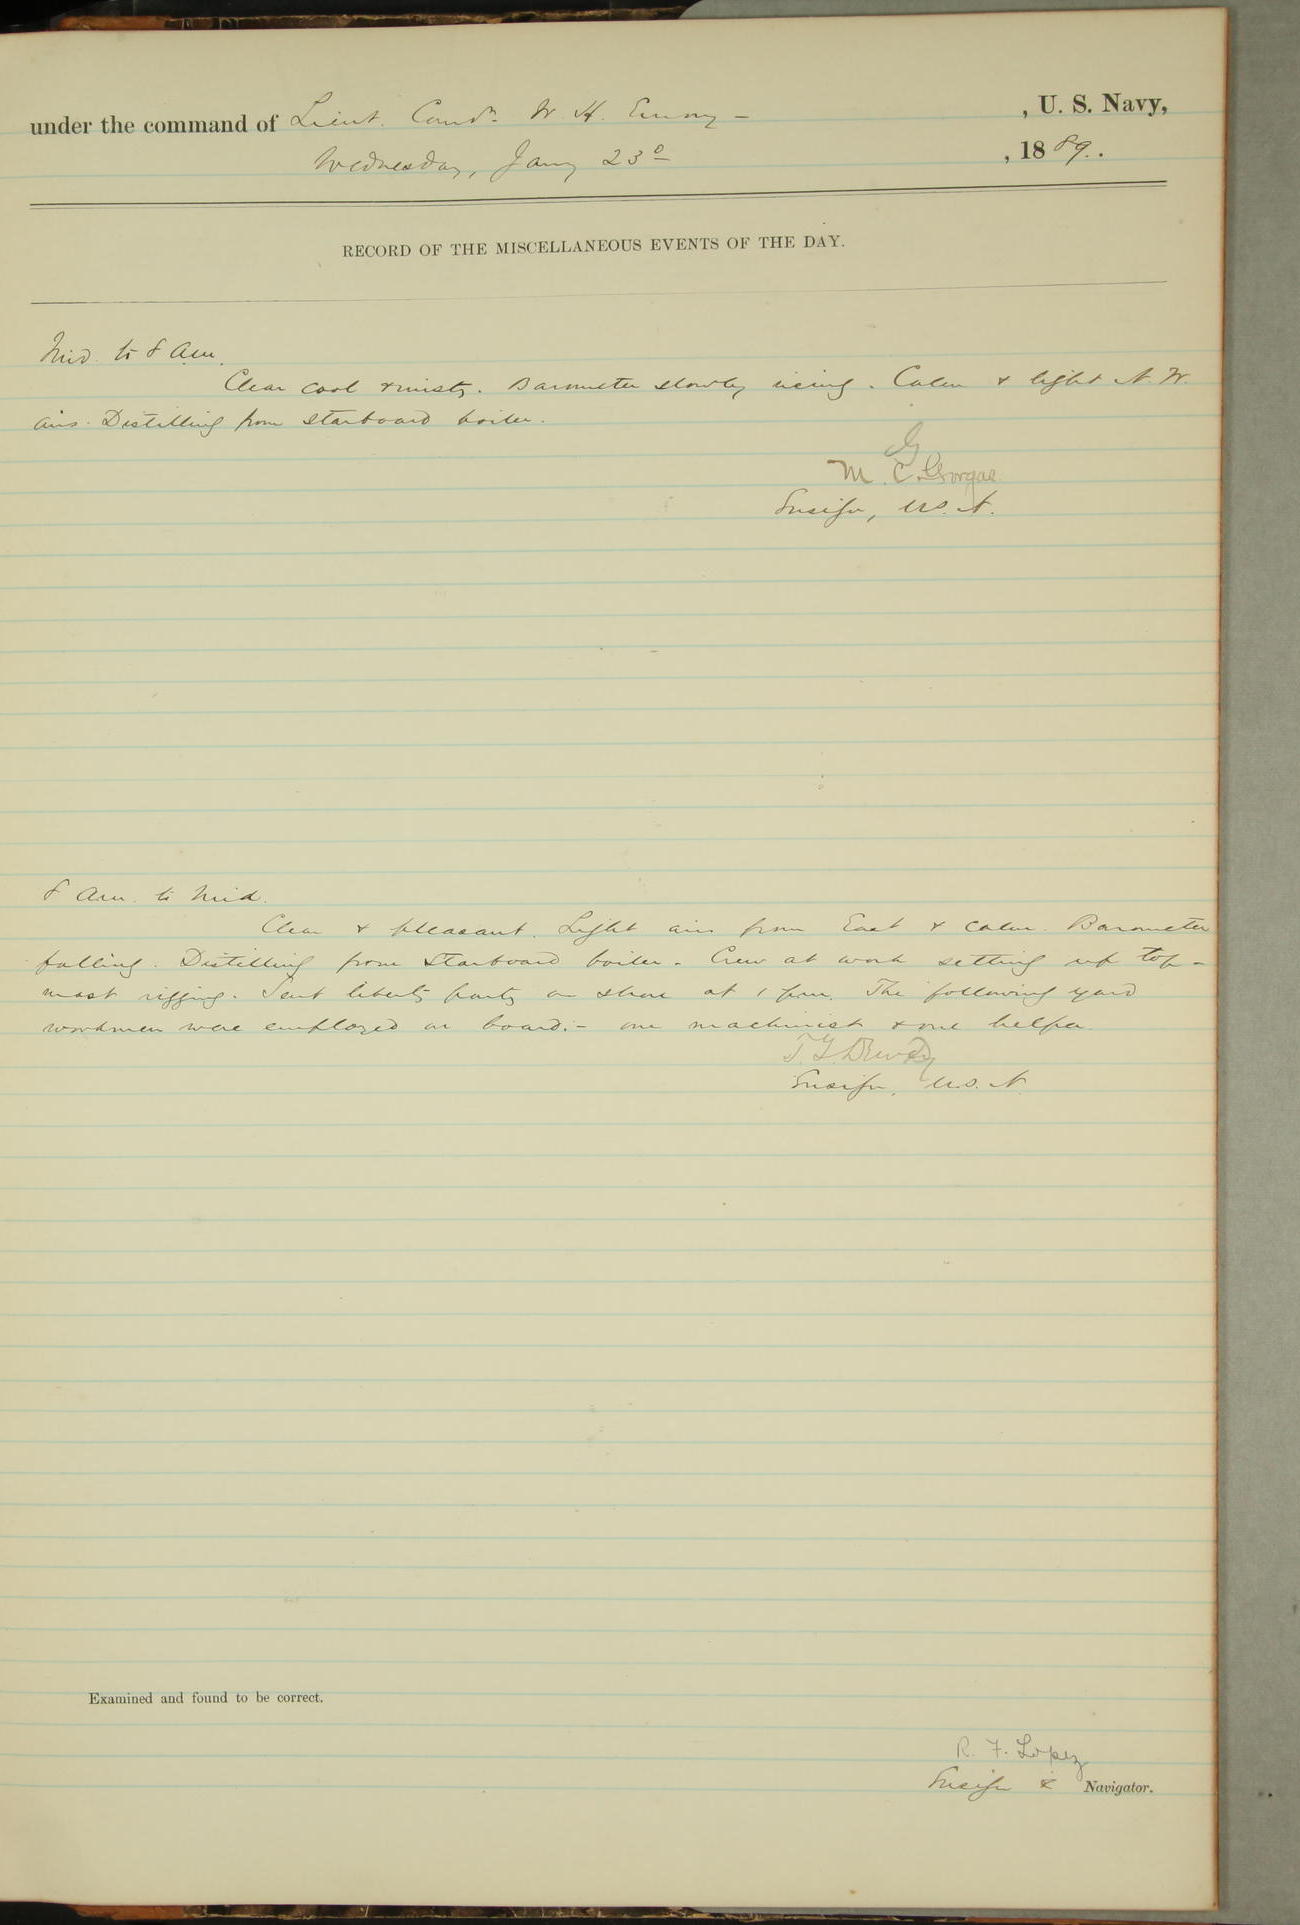 under the command of Lieut. Comdr. W. H. Emory - , U. S. Navy,
Wednesday, Jany 23d , 1889.
RECORD OF THE MISCELLANEOUS EVENTS OF THE DAY.
Mid. to 8 Am.
Clear cool & misty. Barometer slowly rising. Calm & light N. W.
airs. Distilling from starboard boiler.
M. C. Gorgas
Ensign, U.S.N.
8 Am. to Mid.
Clear & pleasant. Light airs from East & calm. Barometer
falling. Distilling from starboard boiler. Crew at work setting up top-
mast rigging. Sent liberty party on shore at 1 pm. The following yard
workmen were employed on board:- one machinist & one helper.
T. G. Dewey
Ensign, U.S.N.
Examined and found to be correct.
R. F. Lopez
Ensign & Navigator.